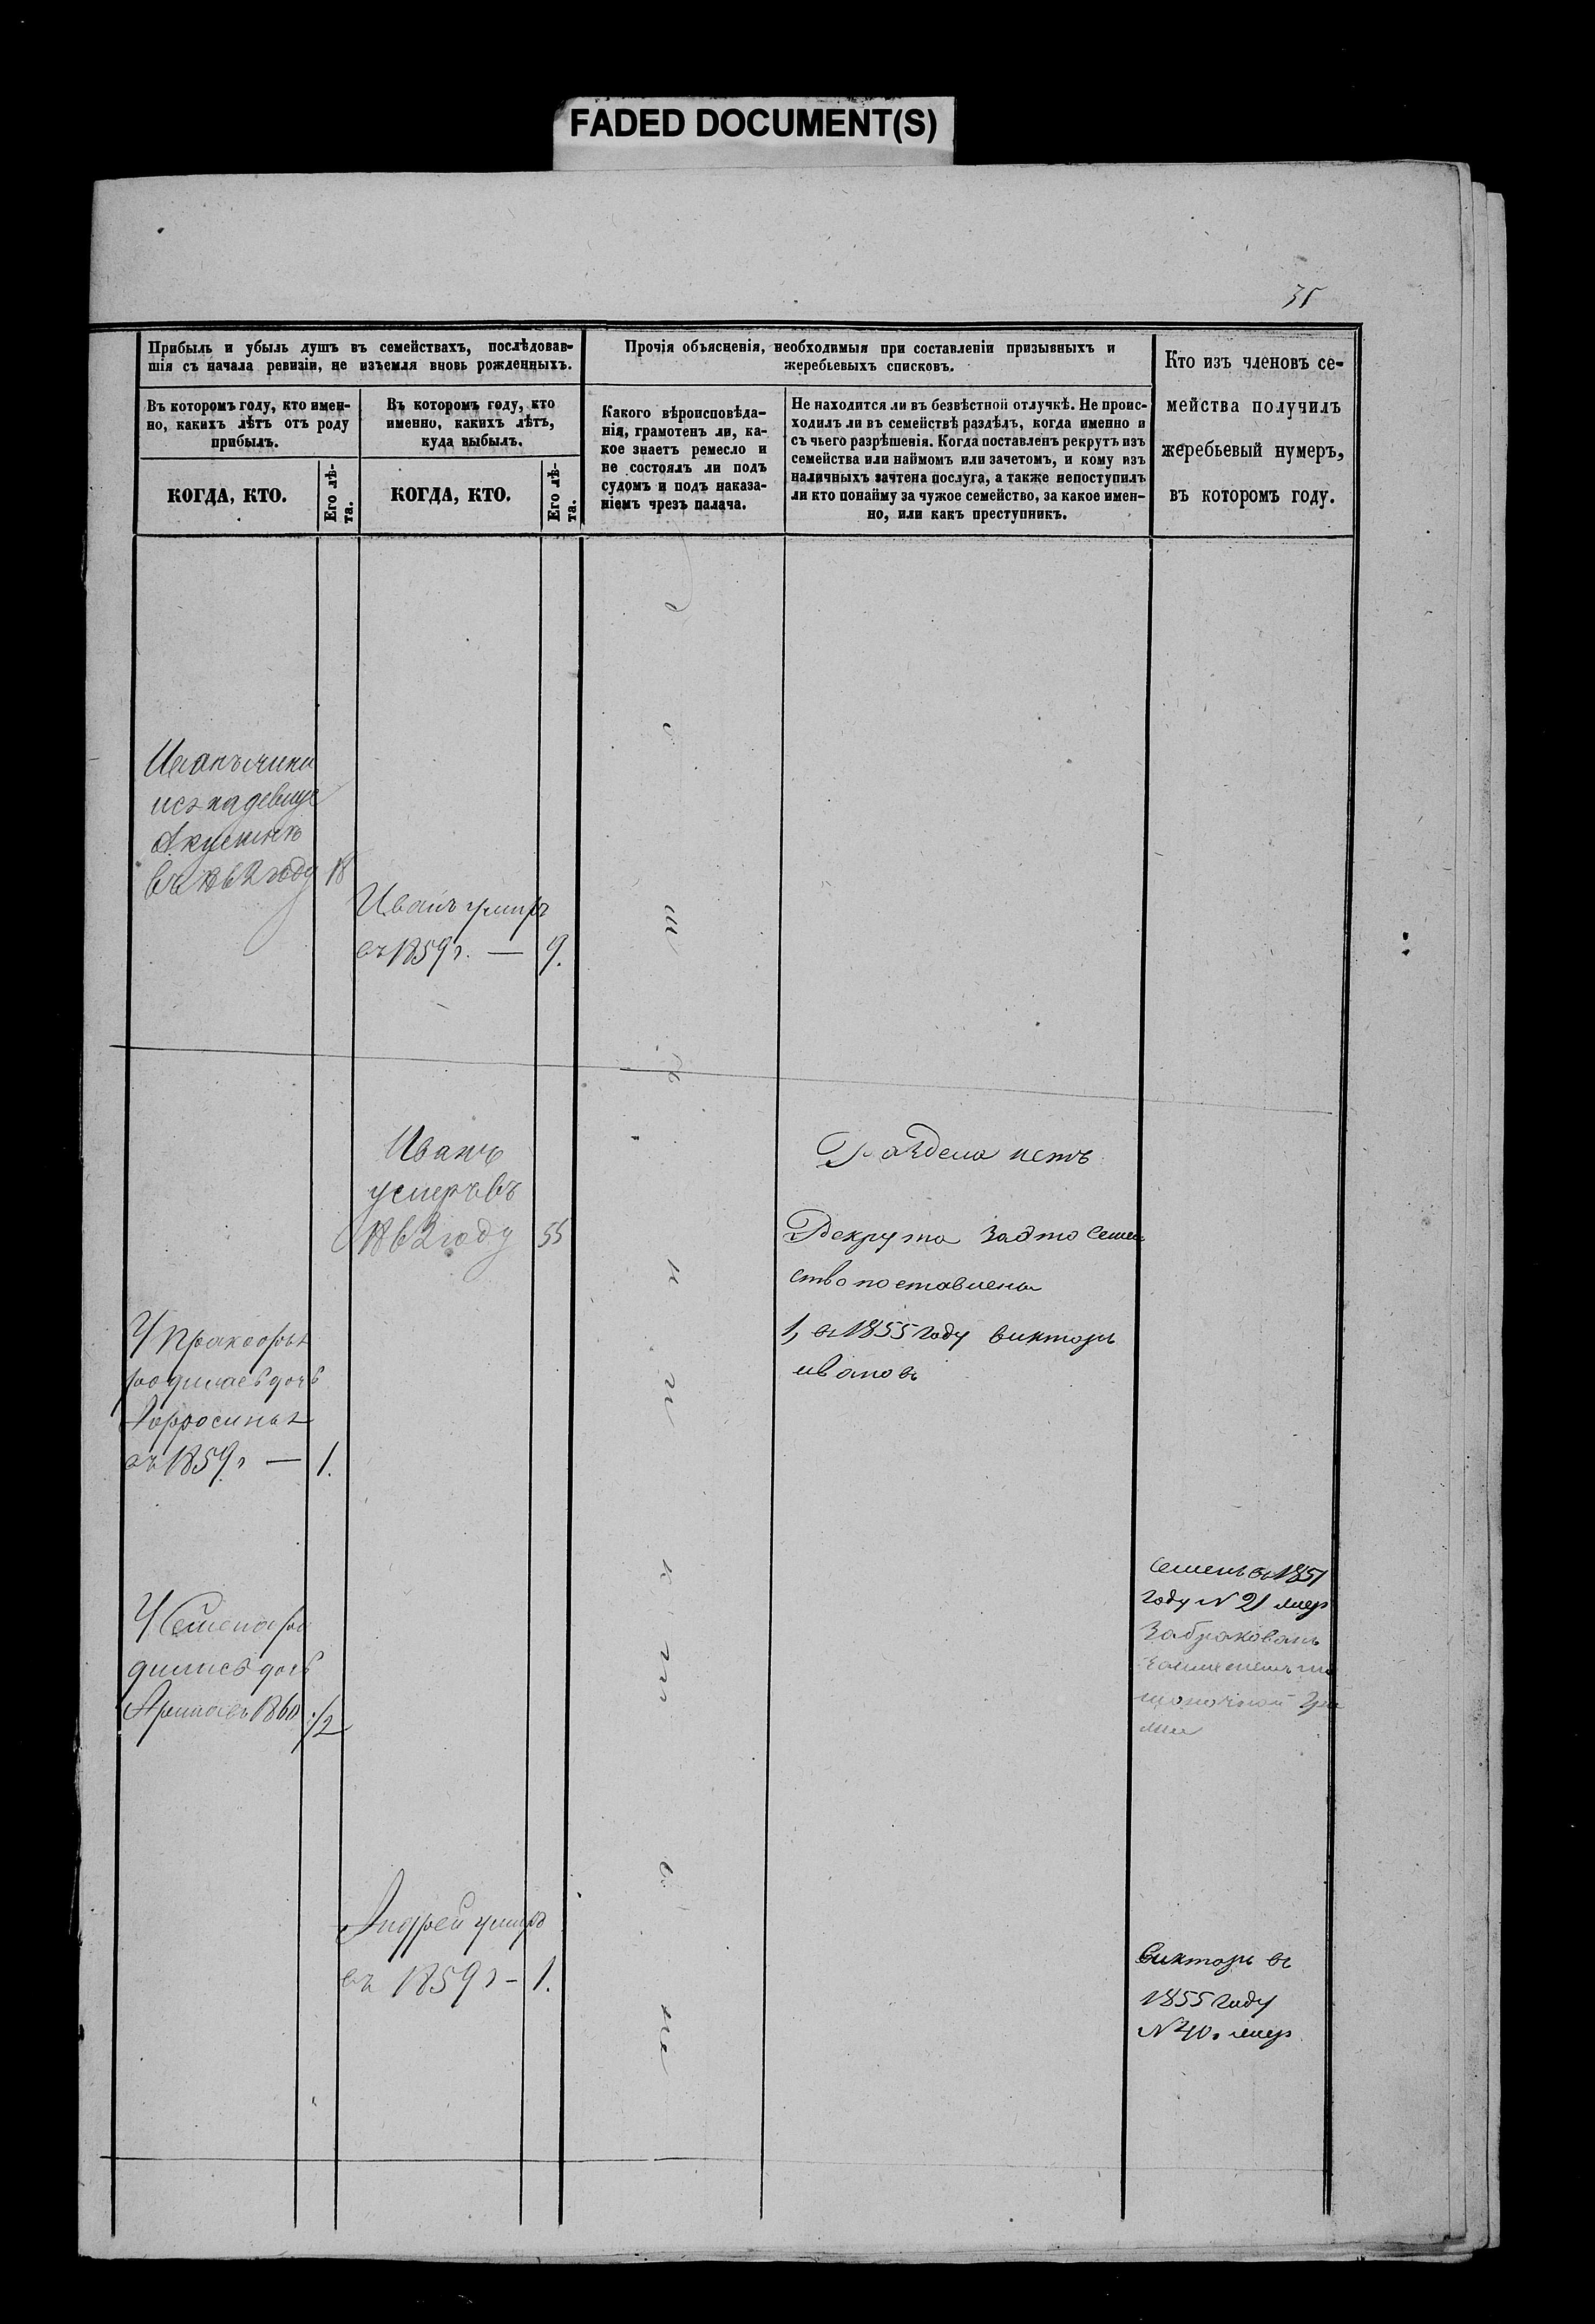 FADED DOCUMENT(S)
35
Прибыль и убыль душъ въ семействахъ, послѣдовав-
шія съ начала ревизіи, не изъемля вновь рожденныхъ.
Въ которомъ году, кто имен-
но, какихъ лѣтъ отъ роду
прибылъ.
КОГДА, КТО.
Его лѣ-
та.
Въ которомъ году, кто
именно, какихъ лѣтъ,
куда выбылъ.
КОГДА, КТО.
Его лѣ-
та.
Прочія объясненія, необходимыя при составленіи призывныхъ и
жеребьевыхъ списковъ.
Какого вѣроисповѣда-
нія, грамотенъ ли, ка-
кое знаетъ ремесло и
не состоялъ ли подъ
судомъ и подъ наказа-
ніемъ чрезъ палача.
Не находится ли въ безвѣстной отлучкѣ. Не проис-
ходилъ ли въ семействѣ раздѣлъ, когда именно и
съ чьего разрѣшенія. Когда поставленъ рекрутъ изъ
семейства или наймомъ или зачетомъ, и кому изъ
наличныхъ зачтена послуга, а также непоступилъ
ли кто понайму за чужое семейство, за какое имен-
но, или какъ преступникъ.
Кто изъ членовъ се-
мейства получилъ
жеребьевый нумеръ,
въ которомъ году.
въ 1862 году 18
Иванъ умиръ
въ 1859 г. — 9.
Иванъ
умеръ въ
1862 году 55
Раздела нетъ
Рекрута за это семей
ство поставлены
1, въ 1855 году викторъ
ивановъ
родилась дочь
въ 1859 г — 1.
У Семена ро
дились дочь
1860 1/2
Семенъ въ 1851
году N 21 мир
Забракованъ
Андрей умиръ
въ 1859 г – 1.
Викторъ въ
1855 году
N 40. мир